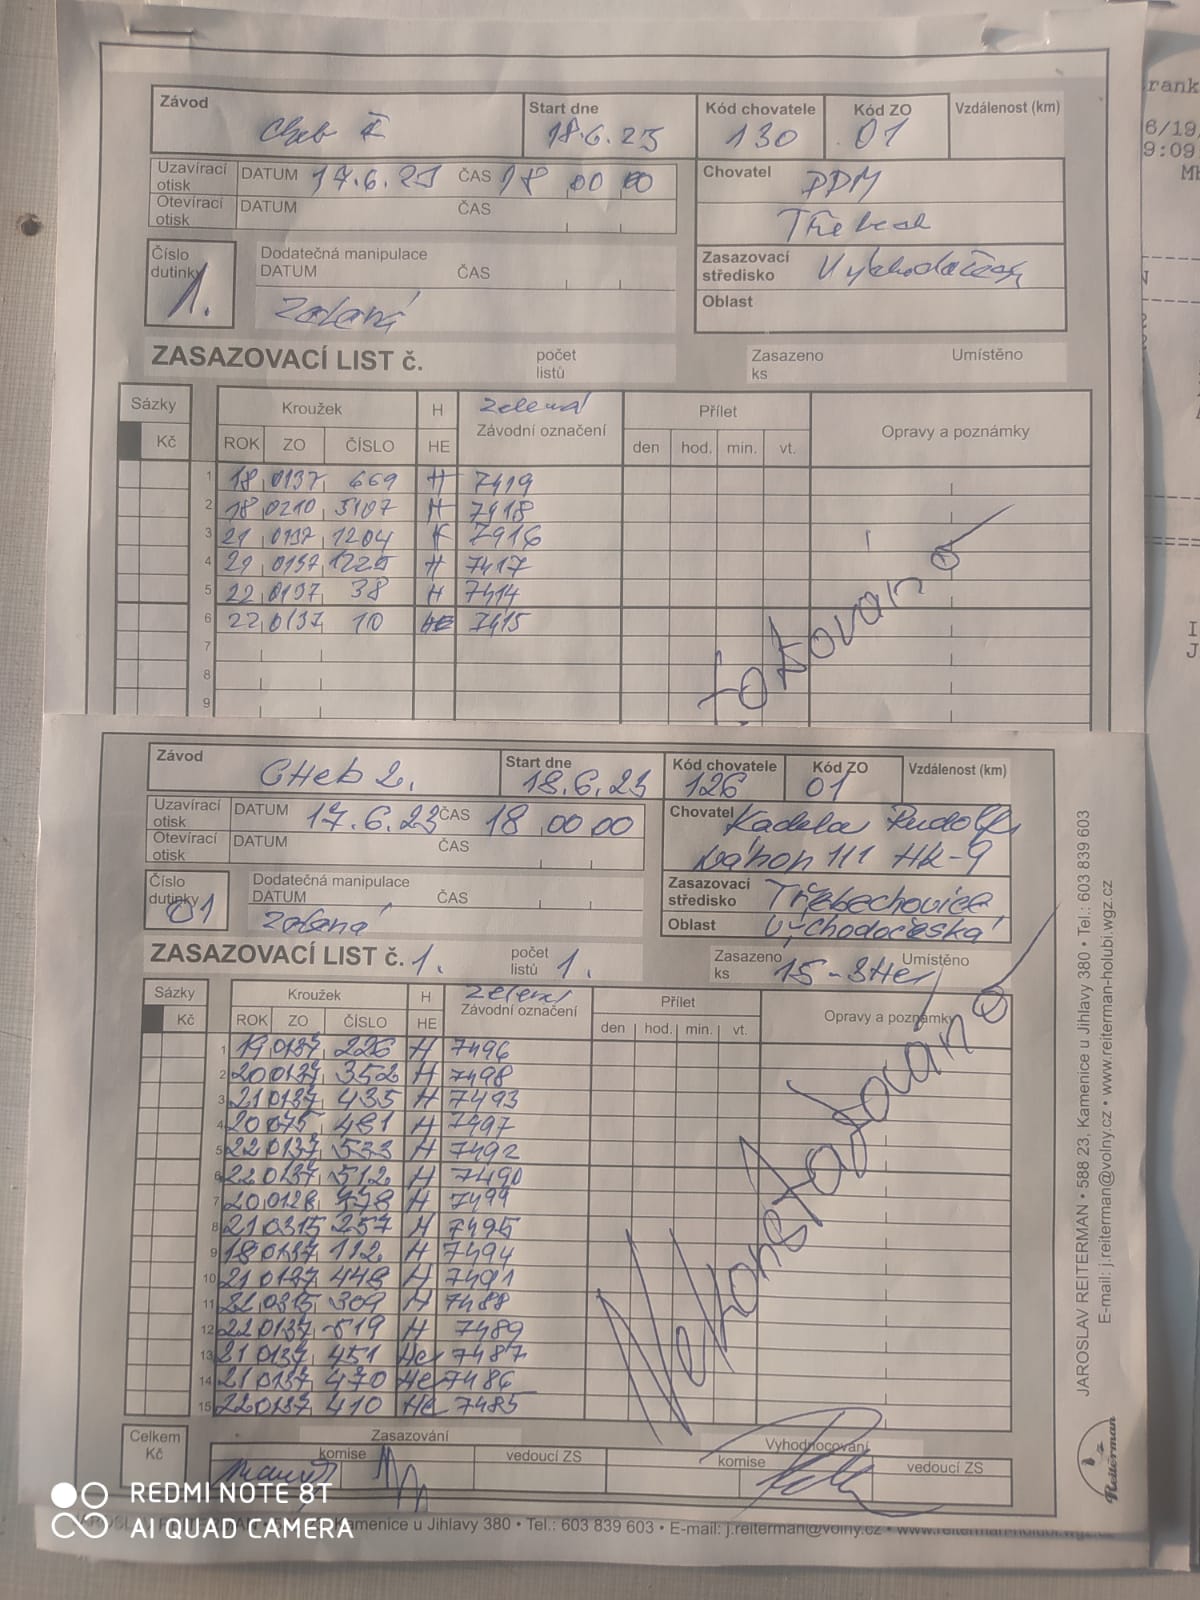 Závod Start dne Kód chovatele Kód ZO Vzdálenost (km)
Cheb II 18.6.23 130 01
Uzavírací otisk DATUM 17.6.23 ČAS 18 00 00
Otevírací otisk DATUM ČAS
Chovatel DDM
Třebech
Číslo dutinky 1.
Dodatečná manipulace
DATUM ČAS
zelená
Zasazovací středisko Východočesk
Oblast
ZASAZOVACÍ LIST č. počet listů Zasazeno ks Umístěno
Sázky Kroužek H zelená Přílet Opravy a poznámky
Kč ROK ZO ČÍSLO HE Závodní označení den hod. min. vt.
1 18 0137 669 H 7419
2 18 0210 5107 H 7418
3 21 0137 1204 H 7416
4 21 0137 1225 H 7417
5 22 0137 38 H 7414
6 22 0137 10 He 7415
7
8
9
Závod Start dne Kód chovatele Kód ZO Vzdálenost (km)
CHeb 2. 18.6.23 126 01
Uzavírací otisk DATUM 17.6.23 ČAS 18 00 00
Otevírací otisk DATUM ČAS
Chovatel Kadela Rudolf
Náhon 111 HK-9
Číslo dutinky 01
Dodatečná manipulace
DATUM ČAS
zelená
Zasazovací středisko Třebechovice
Oblast Východočeská
ZASAZOVACÍ LIST č. 1. počet listů 1. Zasazeno ks 15-3He Umístěno
Sázky Kroužek H zelená Přílet Opravy a poznámky
Kč ROK ZO ČÍSLO HE Závodní označení den hod. min. vt.
1 19 0137 226 H 7496
2 20 0137 352 H 7498
3 21 0137 435 H 7493
4 20 075 481 H 7497
5 22 0137 533 H 7492
6 22 0137 512 H 7490
7 20 0128 778 H 7499
8 21 0315 257 H 7495
9 18 0137 112 H 7494
10 21 0137 448 H 7491
11 22 0315 309 H 7488
12 22 0137 519 H 7489
13 21 0137 451 He 7487
14 21 0137 470 He 7486
15 22 0137 410 He 7485
Nekonstatováno
Celkem Kč Zasazování Vyhodnocování
komise vedoucí ZS komise vedoucí ZS
JAROSLAV REITERMAN • 588 23, Kamenice u Jihlavy 380 • Tel.: 603 839 603
E-mail: j.reiterman@volny.cz • www.reiterman-holubi.wgz.cz
Reiterman
REDMI NOTE 8T
AI QUAD CAMERA
Kamenice u Jihlavy 380 • Tel.: 603 839 603 • E-mail: j.reiterman@volny.cz • www.reiterman-holubi.wgz.cz